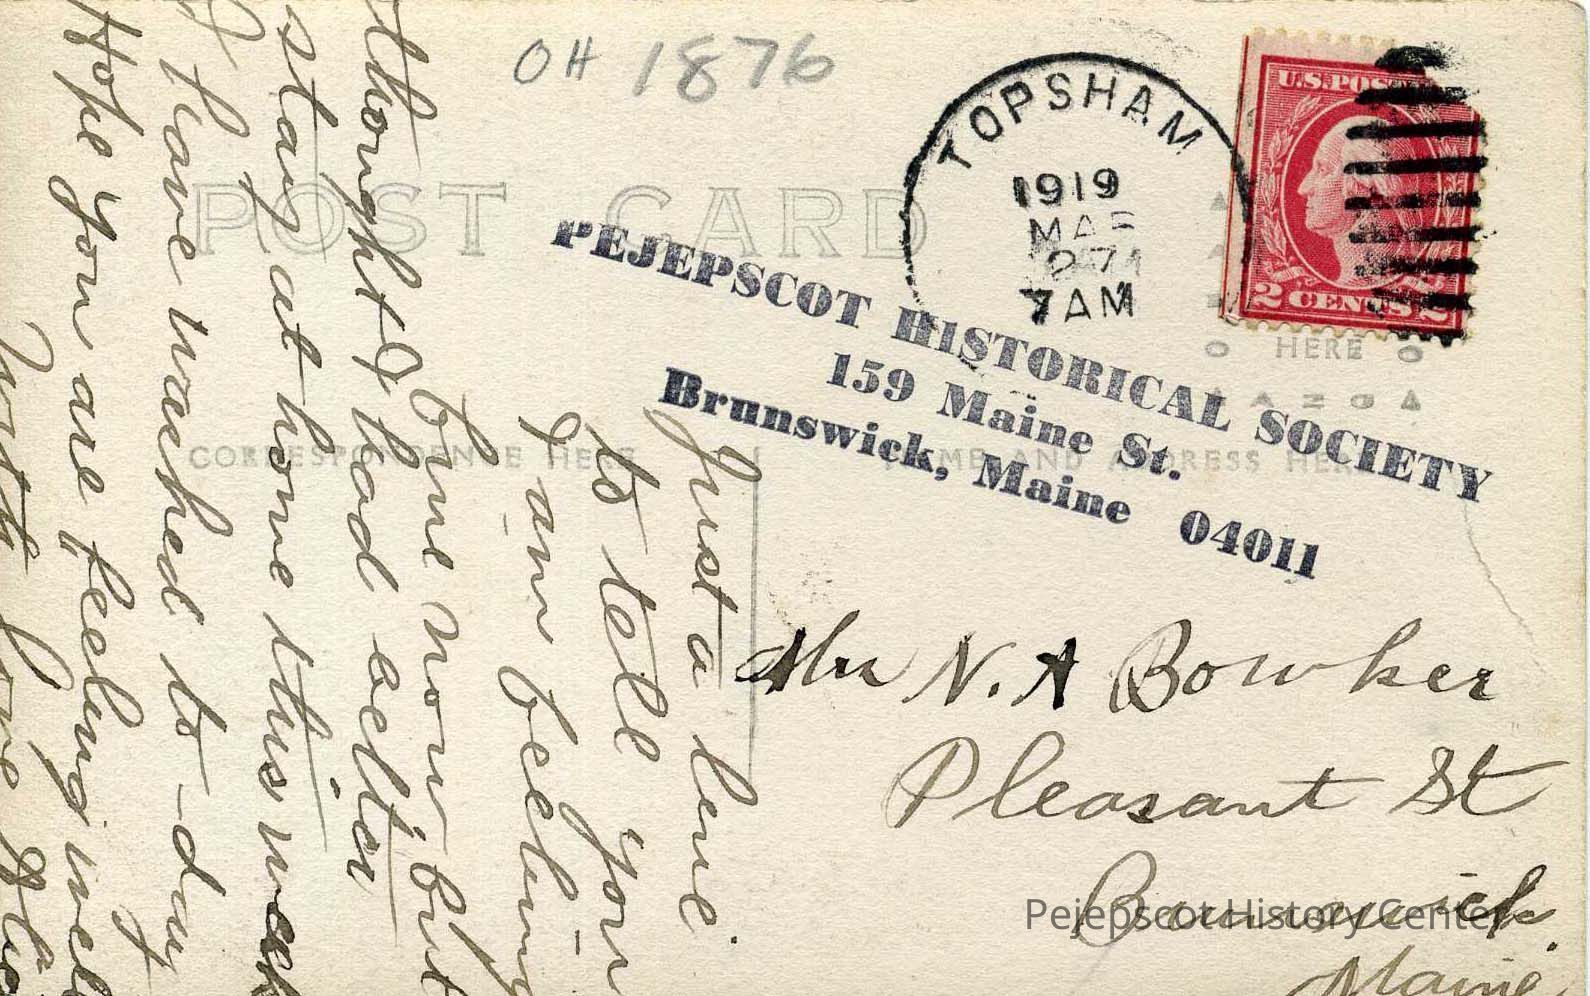 OH 1876
TOPSHAM
1919
MAR
27
7 AM
U.S. POSTAGE
2 CENTS 2
POST CARD
HERE
CORRESPONDENCE HERE
NAME AND ADDRESS HERE
PEJEPSCOT HISTORICAL SOCIETY
159 Maine St.
Brunswick, Maine 04011
Just a line
to tell you
I am feeling
fine now but
thought I had better
stay at home this week
I have washed to-day
Hope you are feeling well
with love
Mr N. A Bowker
Pleasant St
Brunswick
Maine
Pejepscot History Center